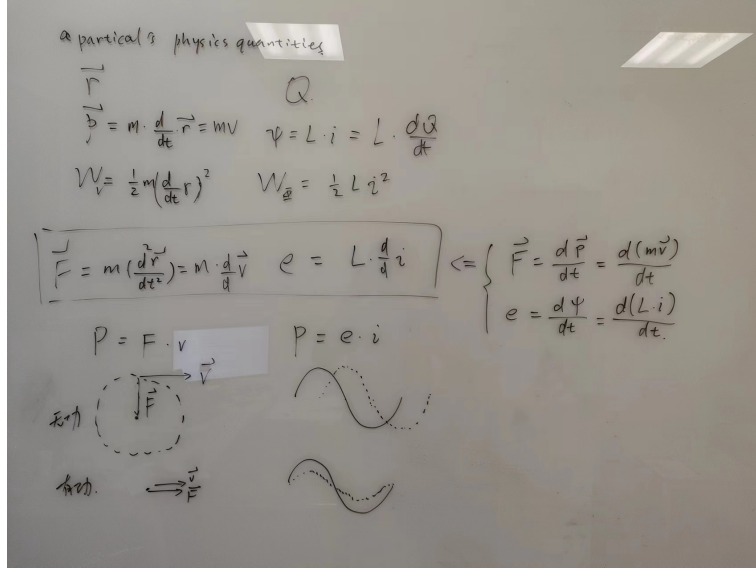 a partical's physics quantities
$\vec{r}$ Q
$\vec{p} = m \cdot \frac{d}{dt} \cdot \vec{r} = mv$ $\psi = L \cdot i = L \cdot \frac{dQ}{dt}$
$W_v = \frac{1}{2} m (\frac{d}{dt} r)^2$ $W_\Phi = \frac{1}{2} L i^2$
$\vec{F} = m (\frac{d^2 \vec{r}}{dt^2}) = m \cdot \frac{d}{d} \vec{v}$ $e = L \cdot \frac{d}{d} i$ <= { $\vec{F} = \frac{d\vec{p}}{dt} = \frac{d(m\vec{v})}{dt}$
$e = \frac{d\psi}{dt} = \frac{d(L \cdot i)}{dt.}$
P = F · v P = e · i
$\vec{v}$
无功 $\vec{F}$
有功. $\vec{v}$
$\vec{F}$